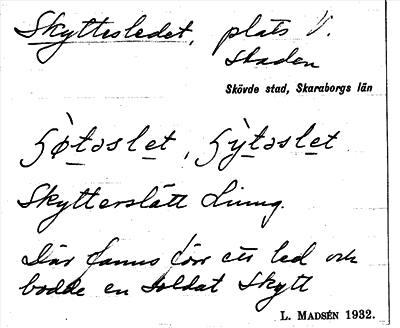 Skyttesledet, plats V.
staden
Skövde stad, Skaraborgs län
ʃø̀təslet, ʃỳtəslet
Skytterslätt Linng.
Där fanns förr ett led och
bodde en soldat Skytt
L. MADSÉN 1932.